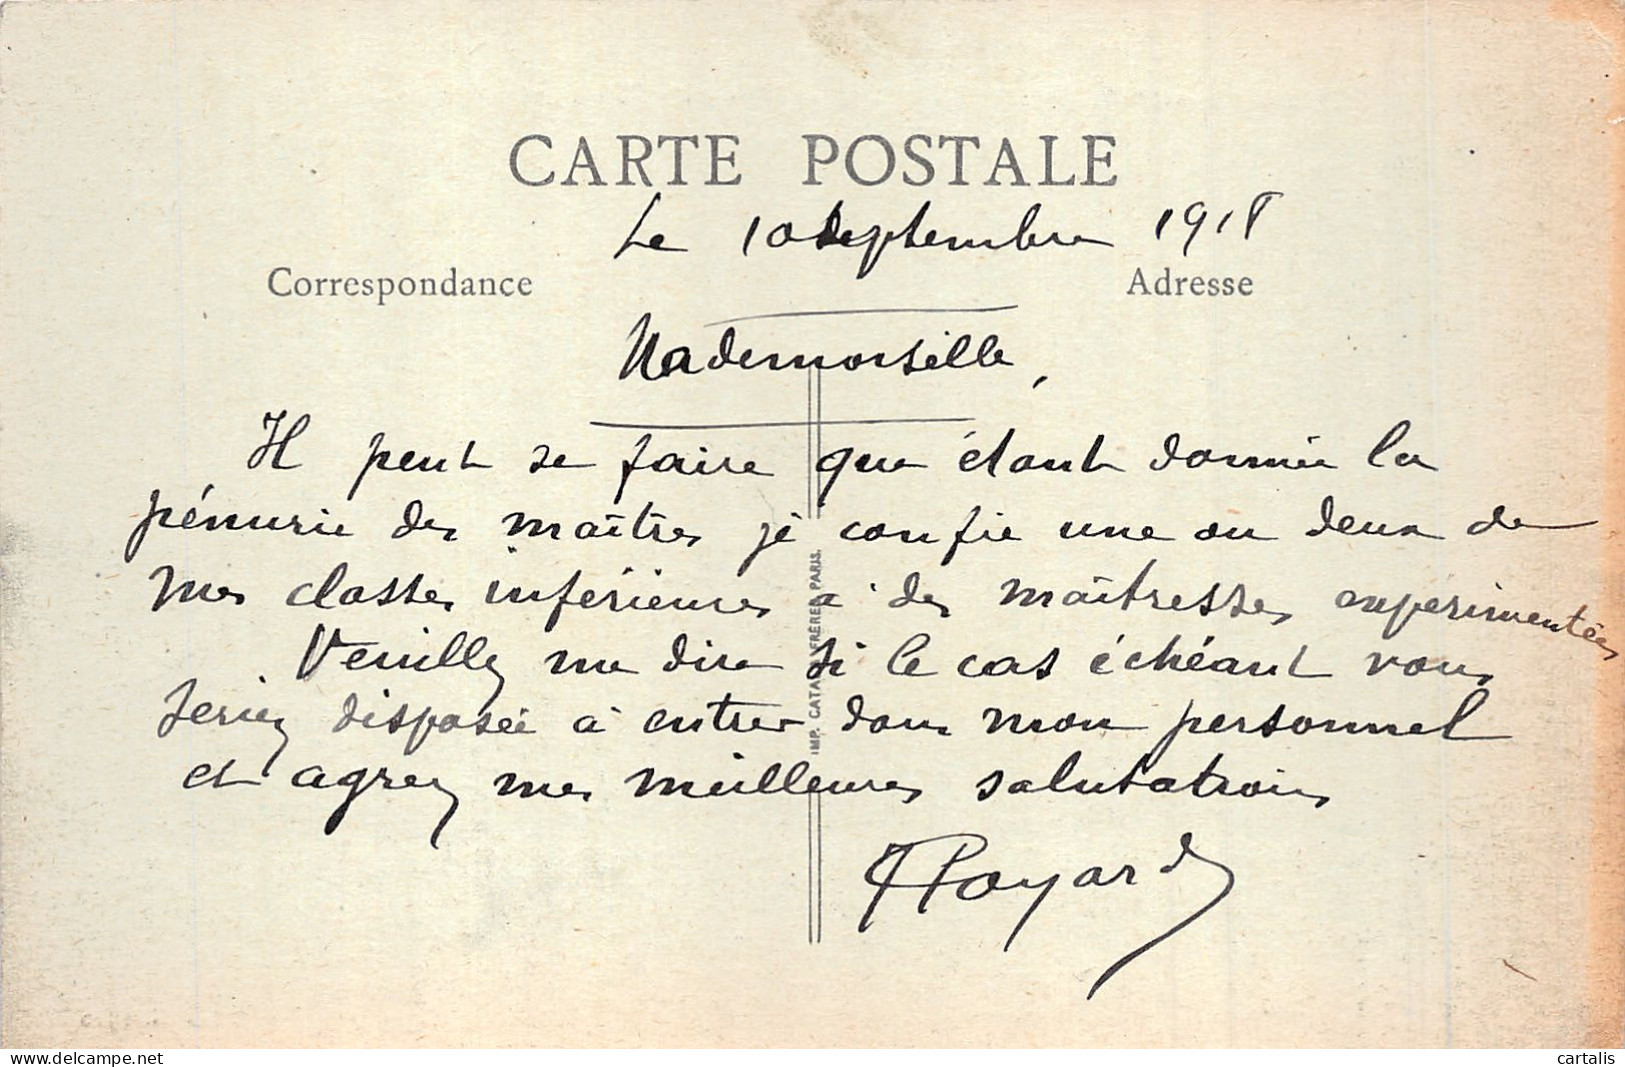 CARTE POSTALE
Le 10 Septembre 1918
Correspondance Adresse
Mademoiselle,
Il peut se faire que étant donnée la
pénurie des maîtres je confie une ou deux de
mes classes inférieures à des maîtresses expérimentées
Veuillez me dire si le cas échéant vous
seriez disposée à entrer dans mon personnel
et agréez mes meilleures salutations
IMP. CATALA FRÈRES, PARIS.
delcampe.net
cartalis